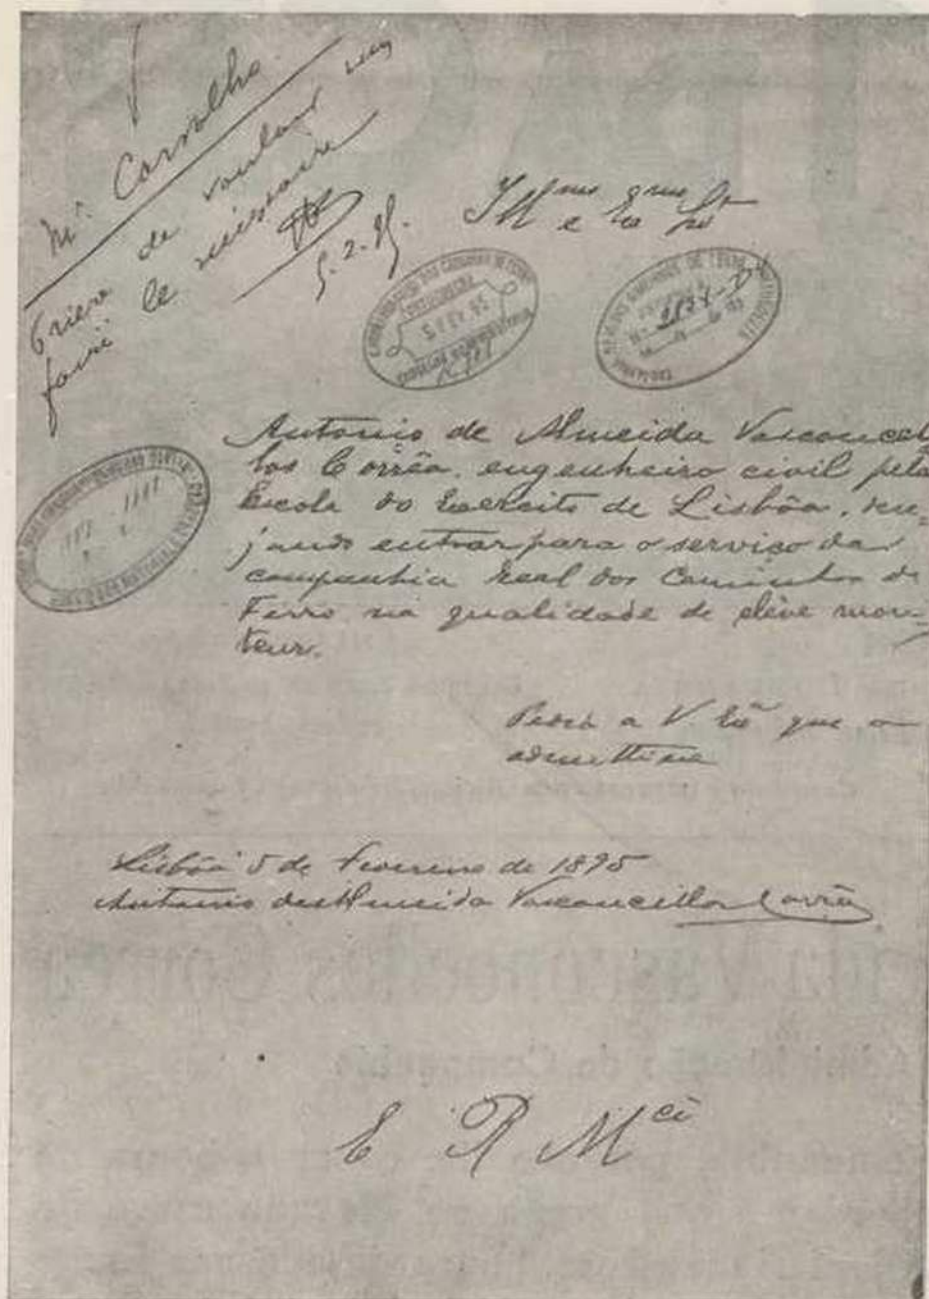 Mr Carvalho
Prière de vouloir
faire le nécessaire
5.2.95.
Illmo e Exmo Snr
Antonio de Almeida Vasconcel
los Corrêa, engenheiro civil pela
Escola do Exercito de Lisbôa, dese-
jando entrar para o serviço da
companhia Real dos Caminhos de
Ferro na qualidade de élève mon-
teur.
Pedia a V. Exª que o
admittisse
Lisbôa 5 de Fevereiro de 1895
Antonio de Almeida Vasconcellos Corrêa
E R Mcê